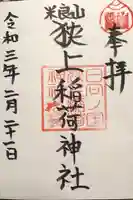 奉拝
米良山
狭上稲荷神社
令和三年二月二十一日